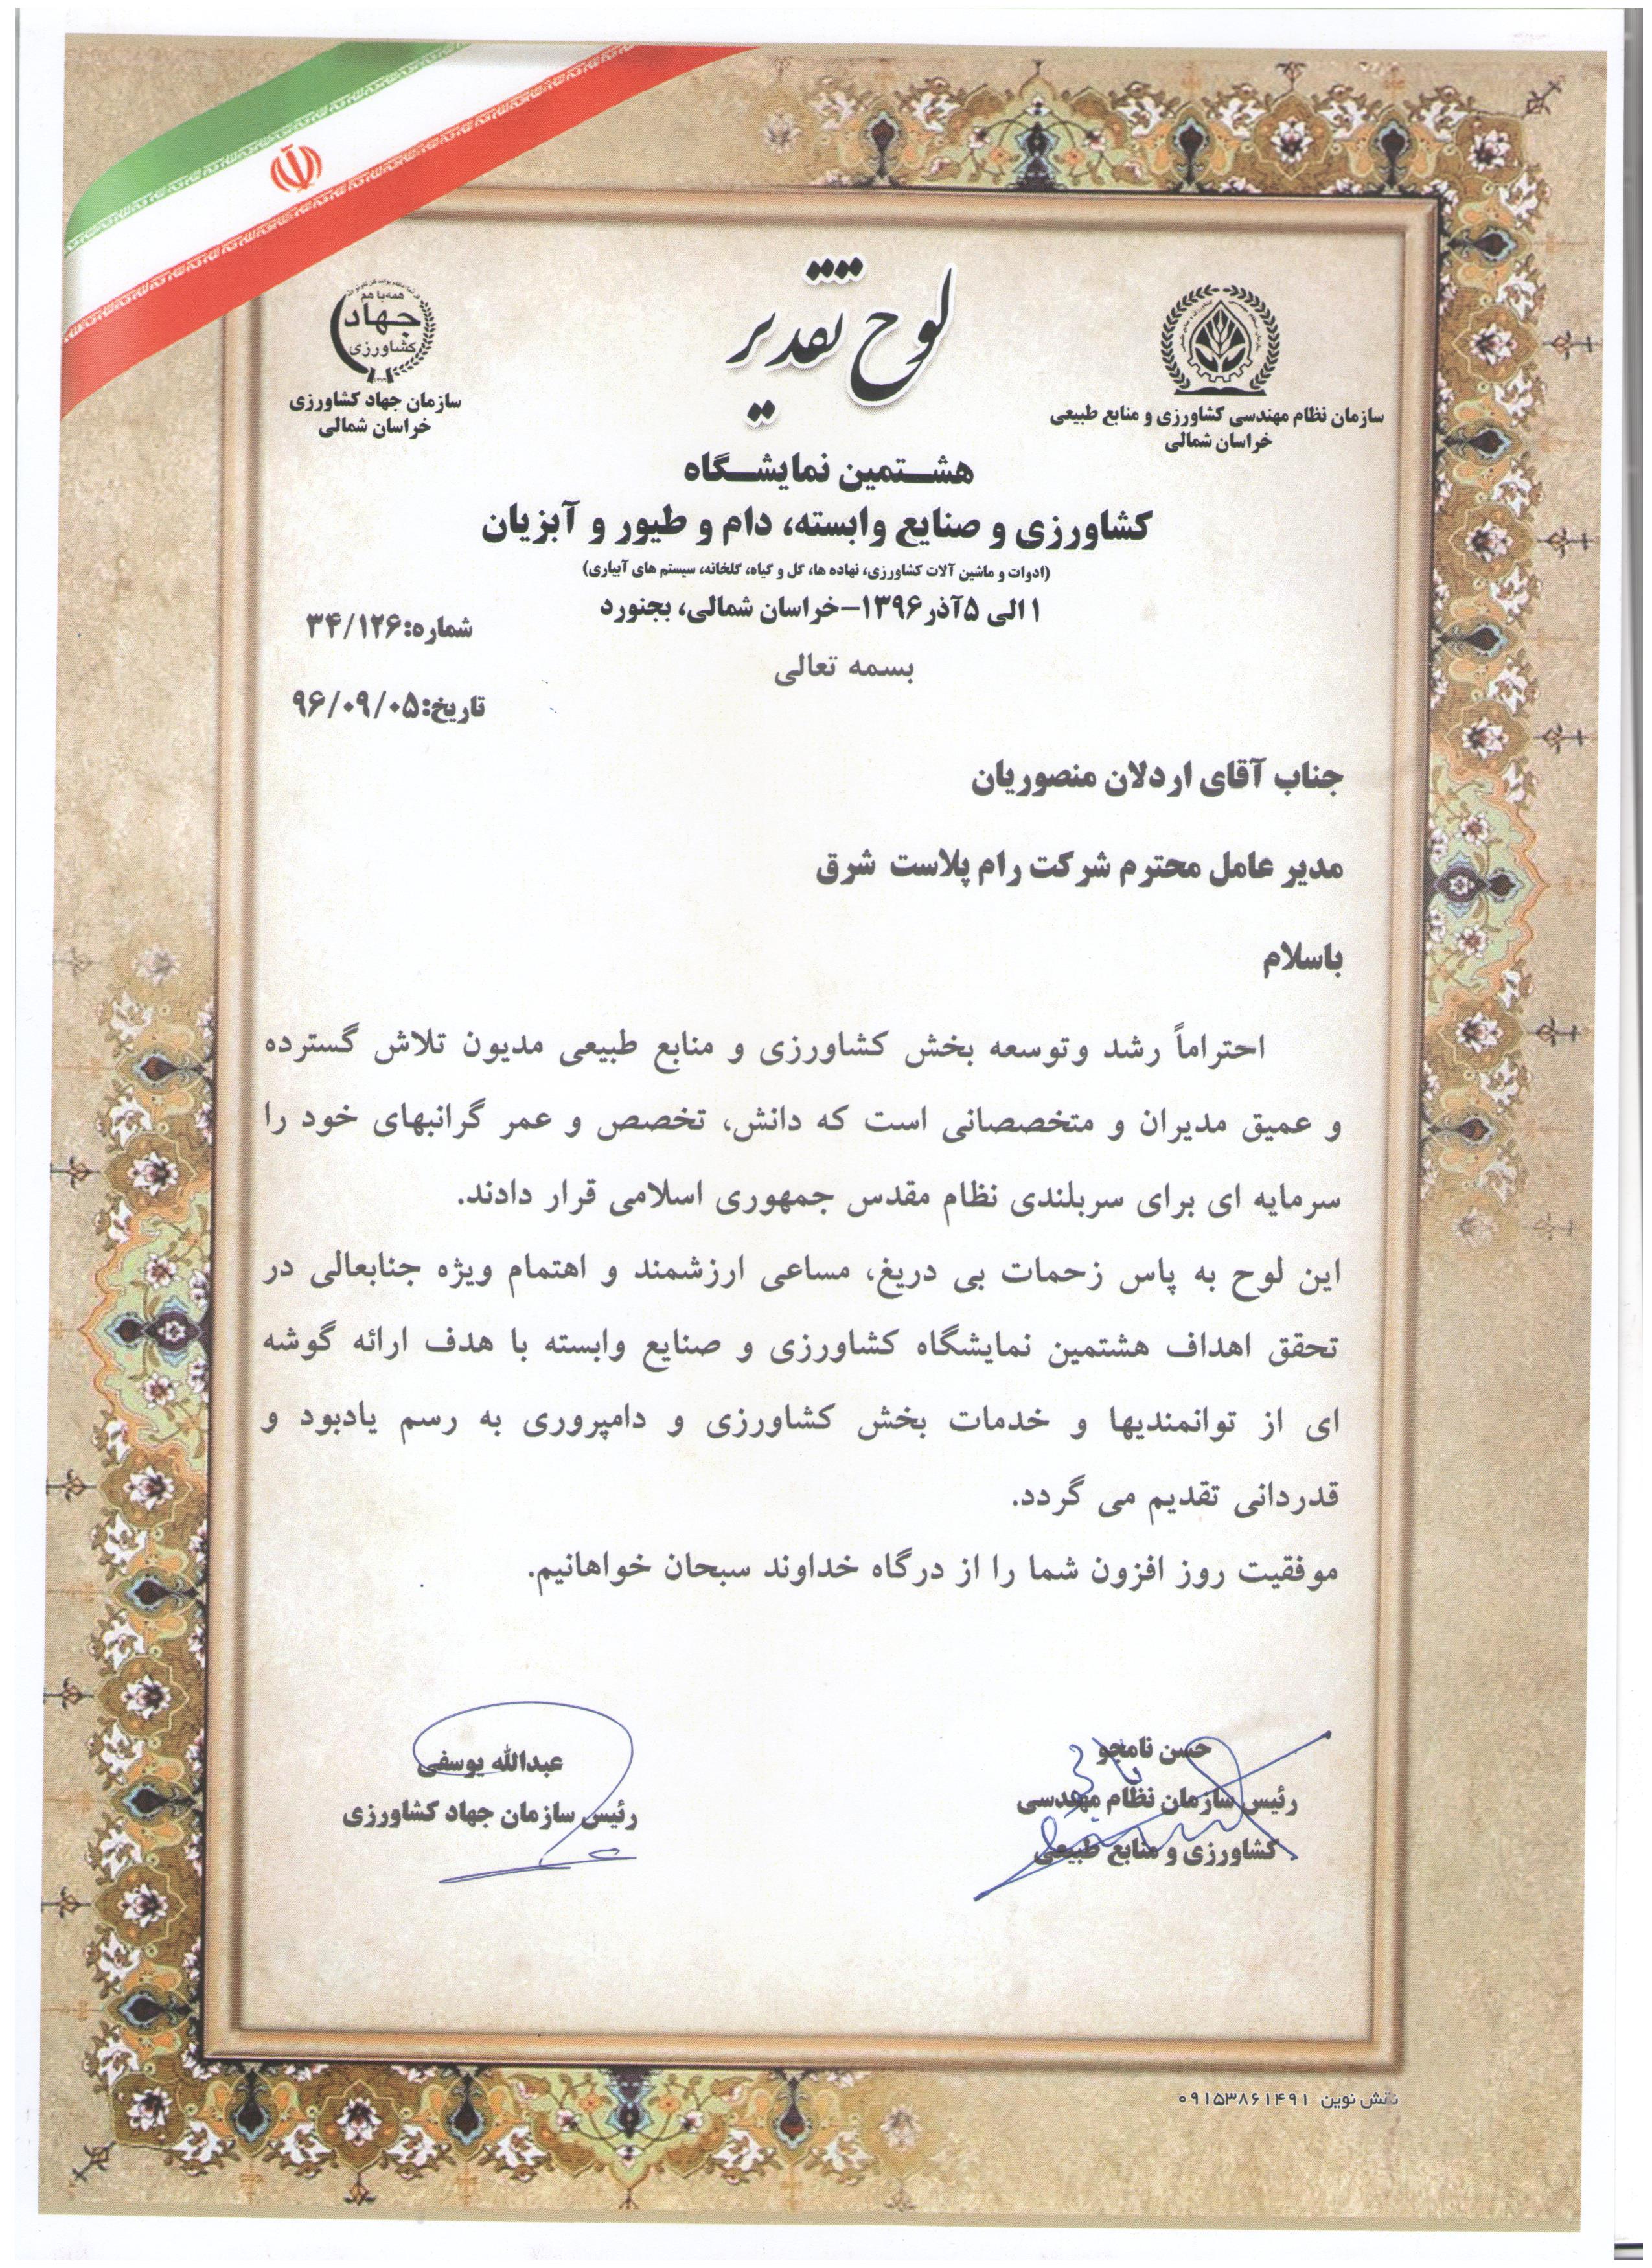 لوح تقدیر
همه با هم
جهاد
کشاورزی
سازمان جهاد کشاورزی
خراسان شمالی
سازمان نظام مهندسی کشاورزی و منابع طبیعی
خراسان شمالی
هشتمین نمایشگاه
کشاورزی و صنایع وابسته، دام و طیور و آبزیان
(ادوات و ماشین آلات کشاورزی، نهاده ها، گل و گیاه، گلخانه، سیستم های آبیاری)
۱ الی ۵ آذر ۱۳۹۶-خراسان شمالی، بجنورد
شماره: ۳۴/۱۲۶
بسمه تعالی
تاریخ: ۹۶/۰۹/۰۵
جناب آقای اردلان منصوریان
مدیر عامل محترم شرکت رام پلاست شرق
باسلام
احتراماً رشد وتوسعه بخش کشاورزی و منابع طبیعی مدیون تلاش گسترده
و عمیق مدیران و متخصصانی است که دانش، تخصص و عمر گرانبهای خود را
سرمایه ای برای سربلندی نظام مقدس جمهوری اسلامی قرار دادند.
این لوح به پاس زحمات بی دریغ، مساعی ارزشمند و اهتمام ویژه جنابعالی در
تحقق اهداف هشتمین نمایشگاه کشاورزی و صنایع وابسته با هدف ارائه گوشه
ای از توانمندیها و خدمات بخش کشاورزی و دامپروری به رسم یادبود و
قدردانی تقدیم می گردد.
موفقیت روز افزون شما را از درگاه خداوند سبحان خواهانیم.
حسن نامجو
رئیس سازمان نظام مهندسی
کشاورزی و منابع طبیعی
عبدالله یوسفی
رئیس سازمان جهاد کشاورزی
نقش نوین ۰۹۱۵۳۸۶۱۴۹۱